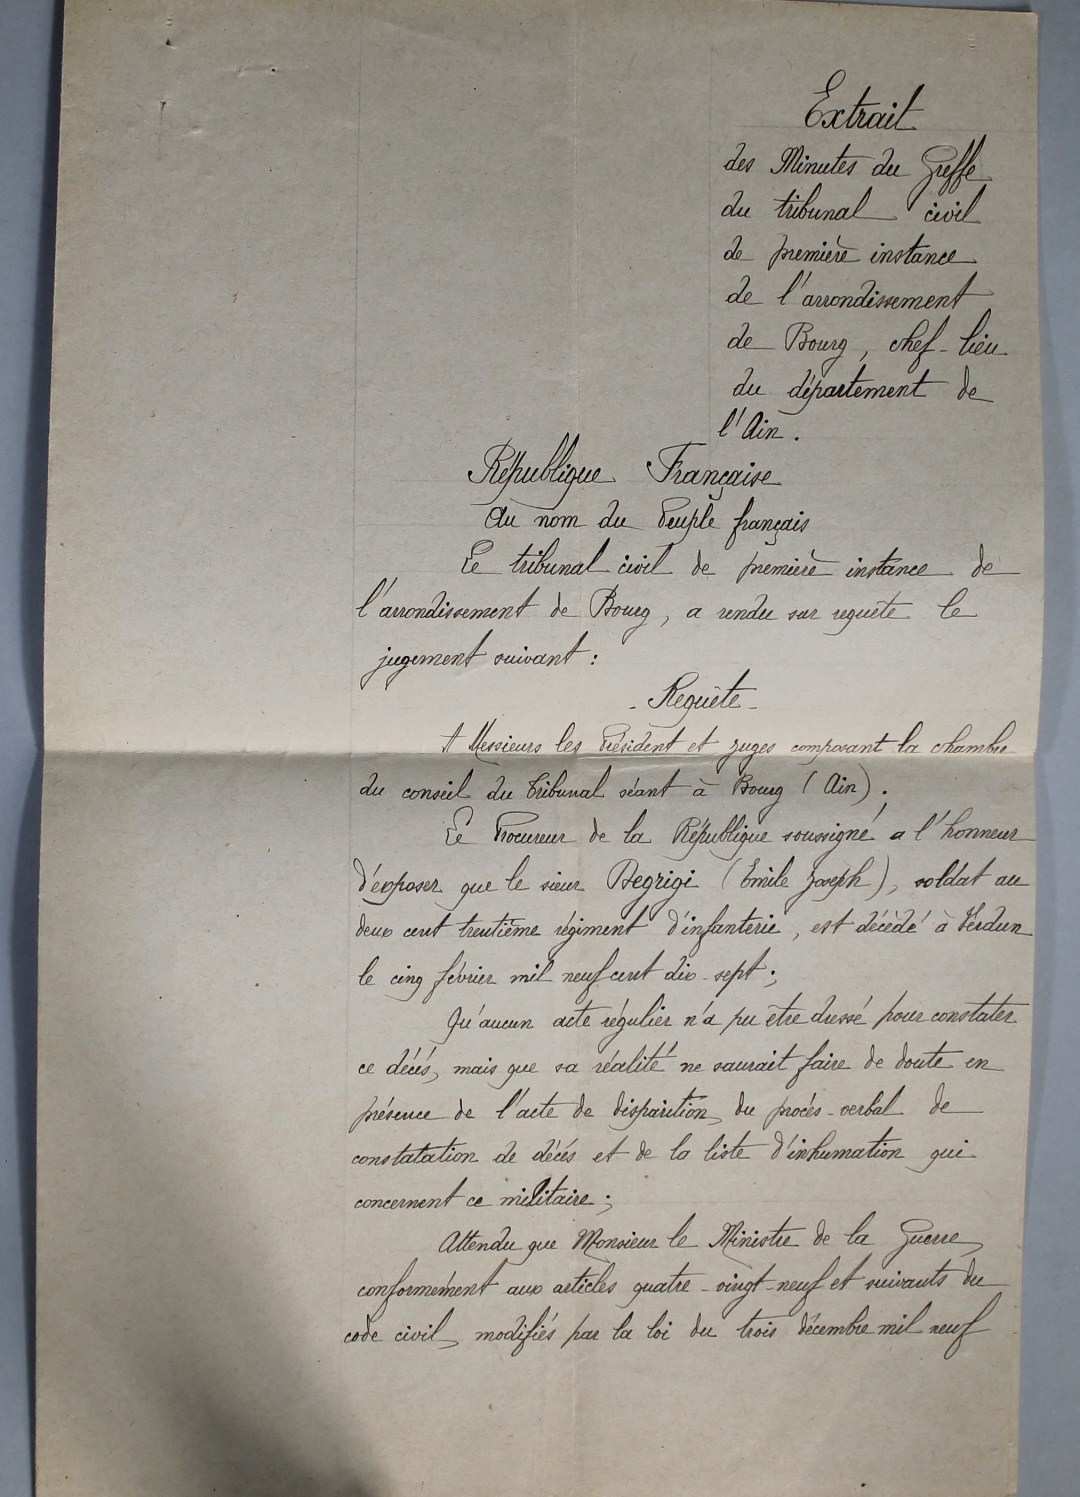 Extrait
des Minutes du Greffe
du tribunal civil
de première instance
de l'arrondissement
de Bourg, chef-lieu
du département de
l'Ain.
République Française
Au nom du Peuple français
Le tribunal civil de première instance de
l'arrondissement de Bourg, a rendu sur requête le
jugement suivant :
- Requête -
A Messieurs les Président et Juges composant la chambre
du conseil du Tribunal séant à Bourg (Ain).
Le Procureur de la République soussigné a l'honneur
d'exposer que le sieur Degrigi (Emile Joseph), soldat au
deux cent trentième régiment d'infanterie, est décédé à Verdun
le cinq février mil neuf cent dix-sept ;
Qu'aucun acte régulier n'a pu être dressé pour constater
ce décés, mais que sa réalité ne saurait faire de doute en
présence de l'acte de disparition, du procés-verbal de
constatation de décés et de la liste d'inhumation qui
concernent ce militaire ;
Attendu que Monsieur le Ministre de la Guerre,
conformément aux articles quatre-vingt-neuf et suivants du
code civil, modifiés par la loi du trois décembre mil neuf